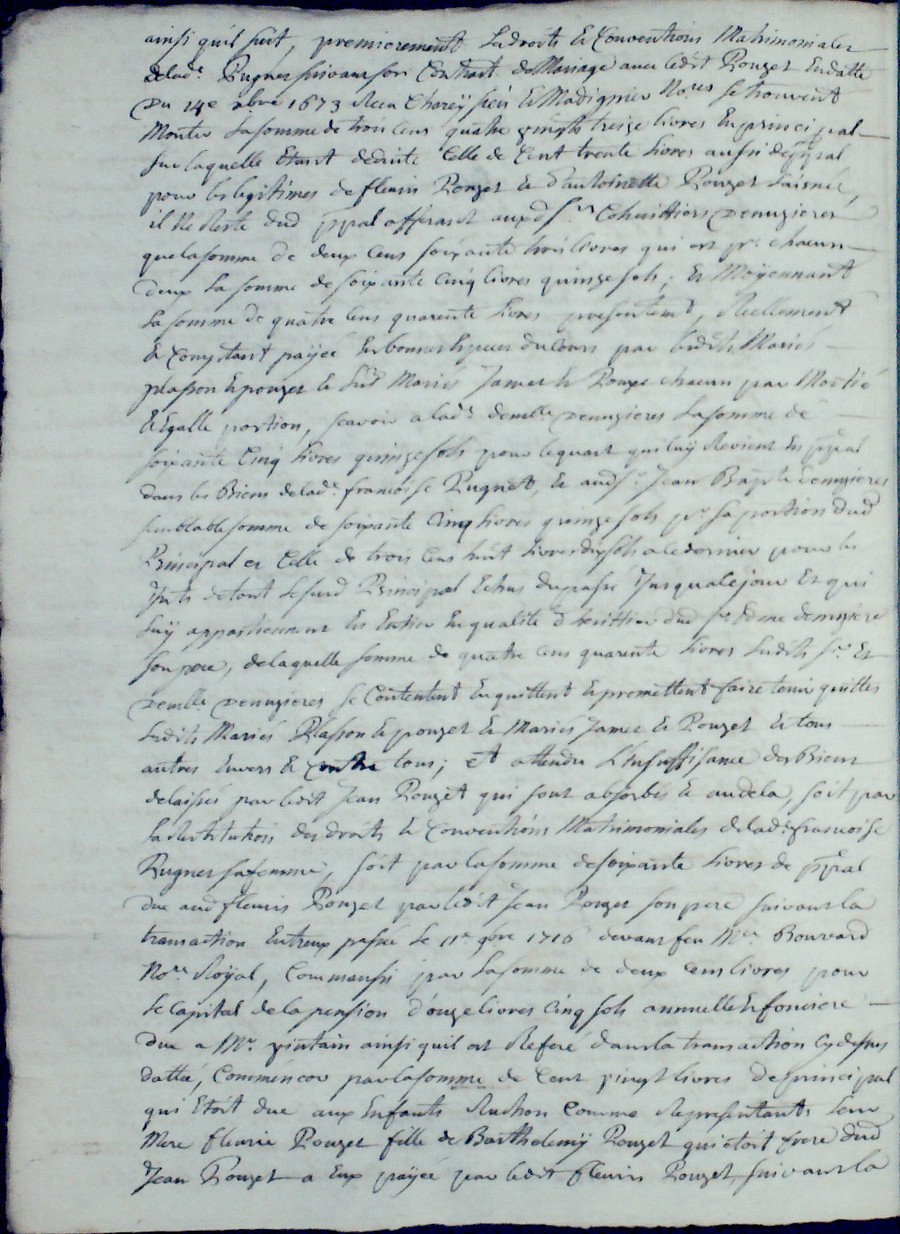 ainsi quil suit, premierement Les droits & Conventions Matrimoniales
delade. Pugnet suivant son Contrat de Mariage avec ledit Rouzet En datte
Du 14e xbre 1673 Recu Chorey fieis & Madignier Nores. se trouvent
Monter La somme de trois cens quatre vingts treize livres En principal
sur laquelle Etant deduite Celle de Cent trente livres aussi de ppal
pour les legitimes de fleurie Rouzet & d'antoinette Rouzet L'aisnée,
il Ne Reste dud ppal afferant auxd srs Cohérittiers Denuzieres
que la somme de deux Cens soixante trois livres qui est pr. chacun
deux La somme de soixante Cinq livres quinze sols; Et Moyennant
La somme de quatre Cens quarente livres presentemt, Reellement
& Comptant payée En bonnes Especes du Cours par lesdits Mariés
plasson & Rouzet & Lesd Mariés Jamet & Rouzet chacun par Moitié
& Egalle portion, scavoir a lade. demelle Denuzieres La somme de
soixante Cinq livres quinze sols pour le quart qui luy Revient En ppal
dans les Biens delade. francoise Pugnet, & aud sr. Jean Baptte denuzieres
semblable somme de soixante Cinq livres quinze sols pr. sa portion dud
Principal et Celle de trois Cens huit livres dix sols a ce dernier pour les
Jnts de tout Le surd Principal Echus du passé Jusqua ce jour Et qui
Luy appartiennent En Entier En qualité d'herittier dud sr. denuziere
son pere, de laquelle somme de quatre cens quarente livres Lesdits sr. Et
Demelle Denuzieres se Contentent En quittent & promettent faire tenir quittes
Lesdits Mariés Plasson & Rouzet & Mariés Jamet & Rouzet Et tous
autres Envers & Contre tous; Et attendu L'Insuffisance des Biens
delaissés par ledit Jean Rouzet qui sont absorbés & au dela, soit par
La Restitution des droits & Conventions Matrimoniales delade. francoise
Pugnet sa femme, soit par la somme de soixante livres de ppal
due aud fleuris Rouzet par ledit Jean Rouzet son pere suivant la
transaction Entreux passée Le 11e 9bre 1716 devant feu Me. Bouvard
Nore. Royal, Comm'aussi par La somme de deux cens livres pour
Le Capital de la pension d'onze livres Cinq sols annuelle & fonciere
due a Mr. vintain ainsi quil est Referé dans la transaction Cy dessus
dattée, Comm'encor par la somme de Cent vingt livres De principal
qui Etoit due aux Enfants Ruchon Comme Representants Leur
Mere fleurie Rouzet fille de Barthelemy Rouzet qui etoit frere dud
Jean Rouzet a Eux payée par ledit fleuris Rouzet suivant la